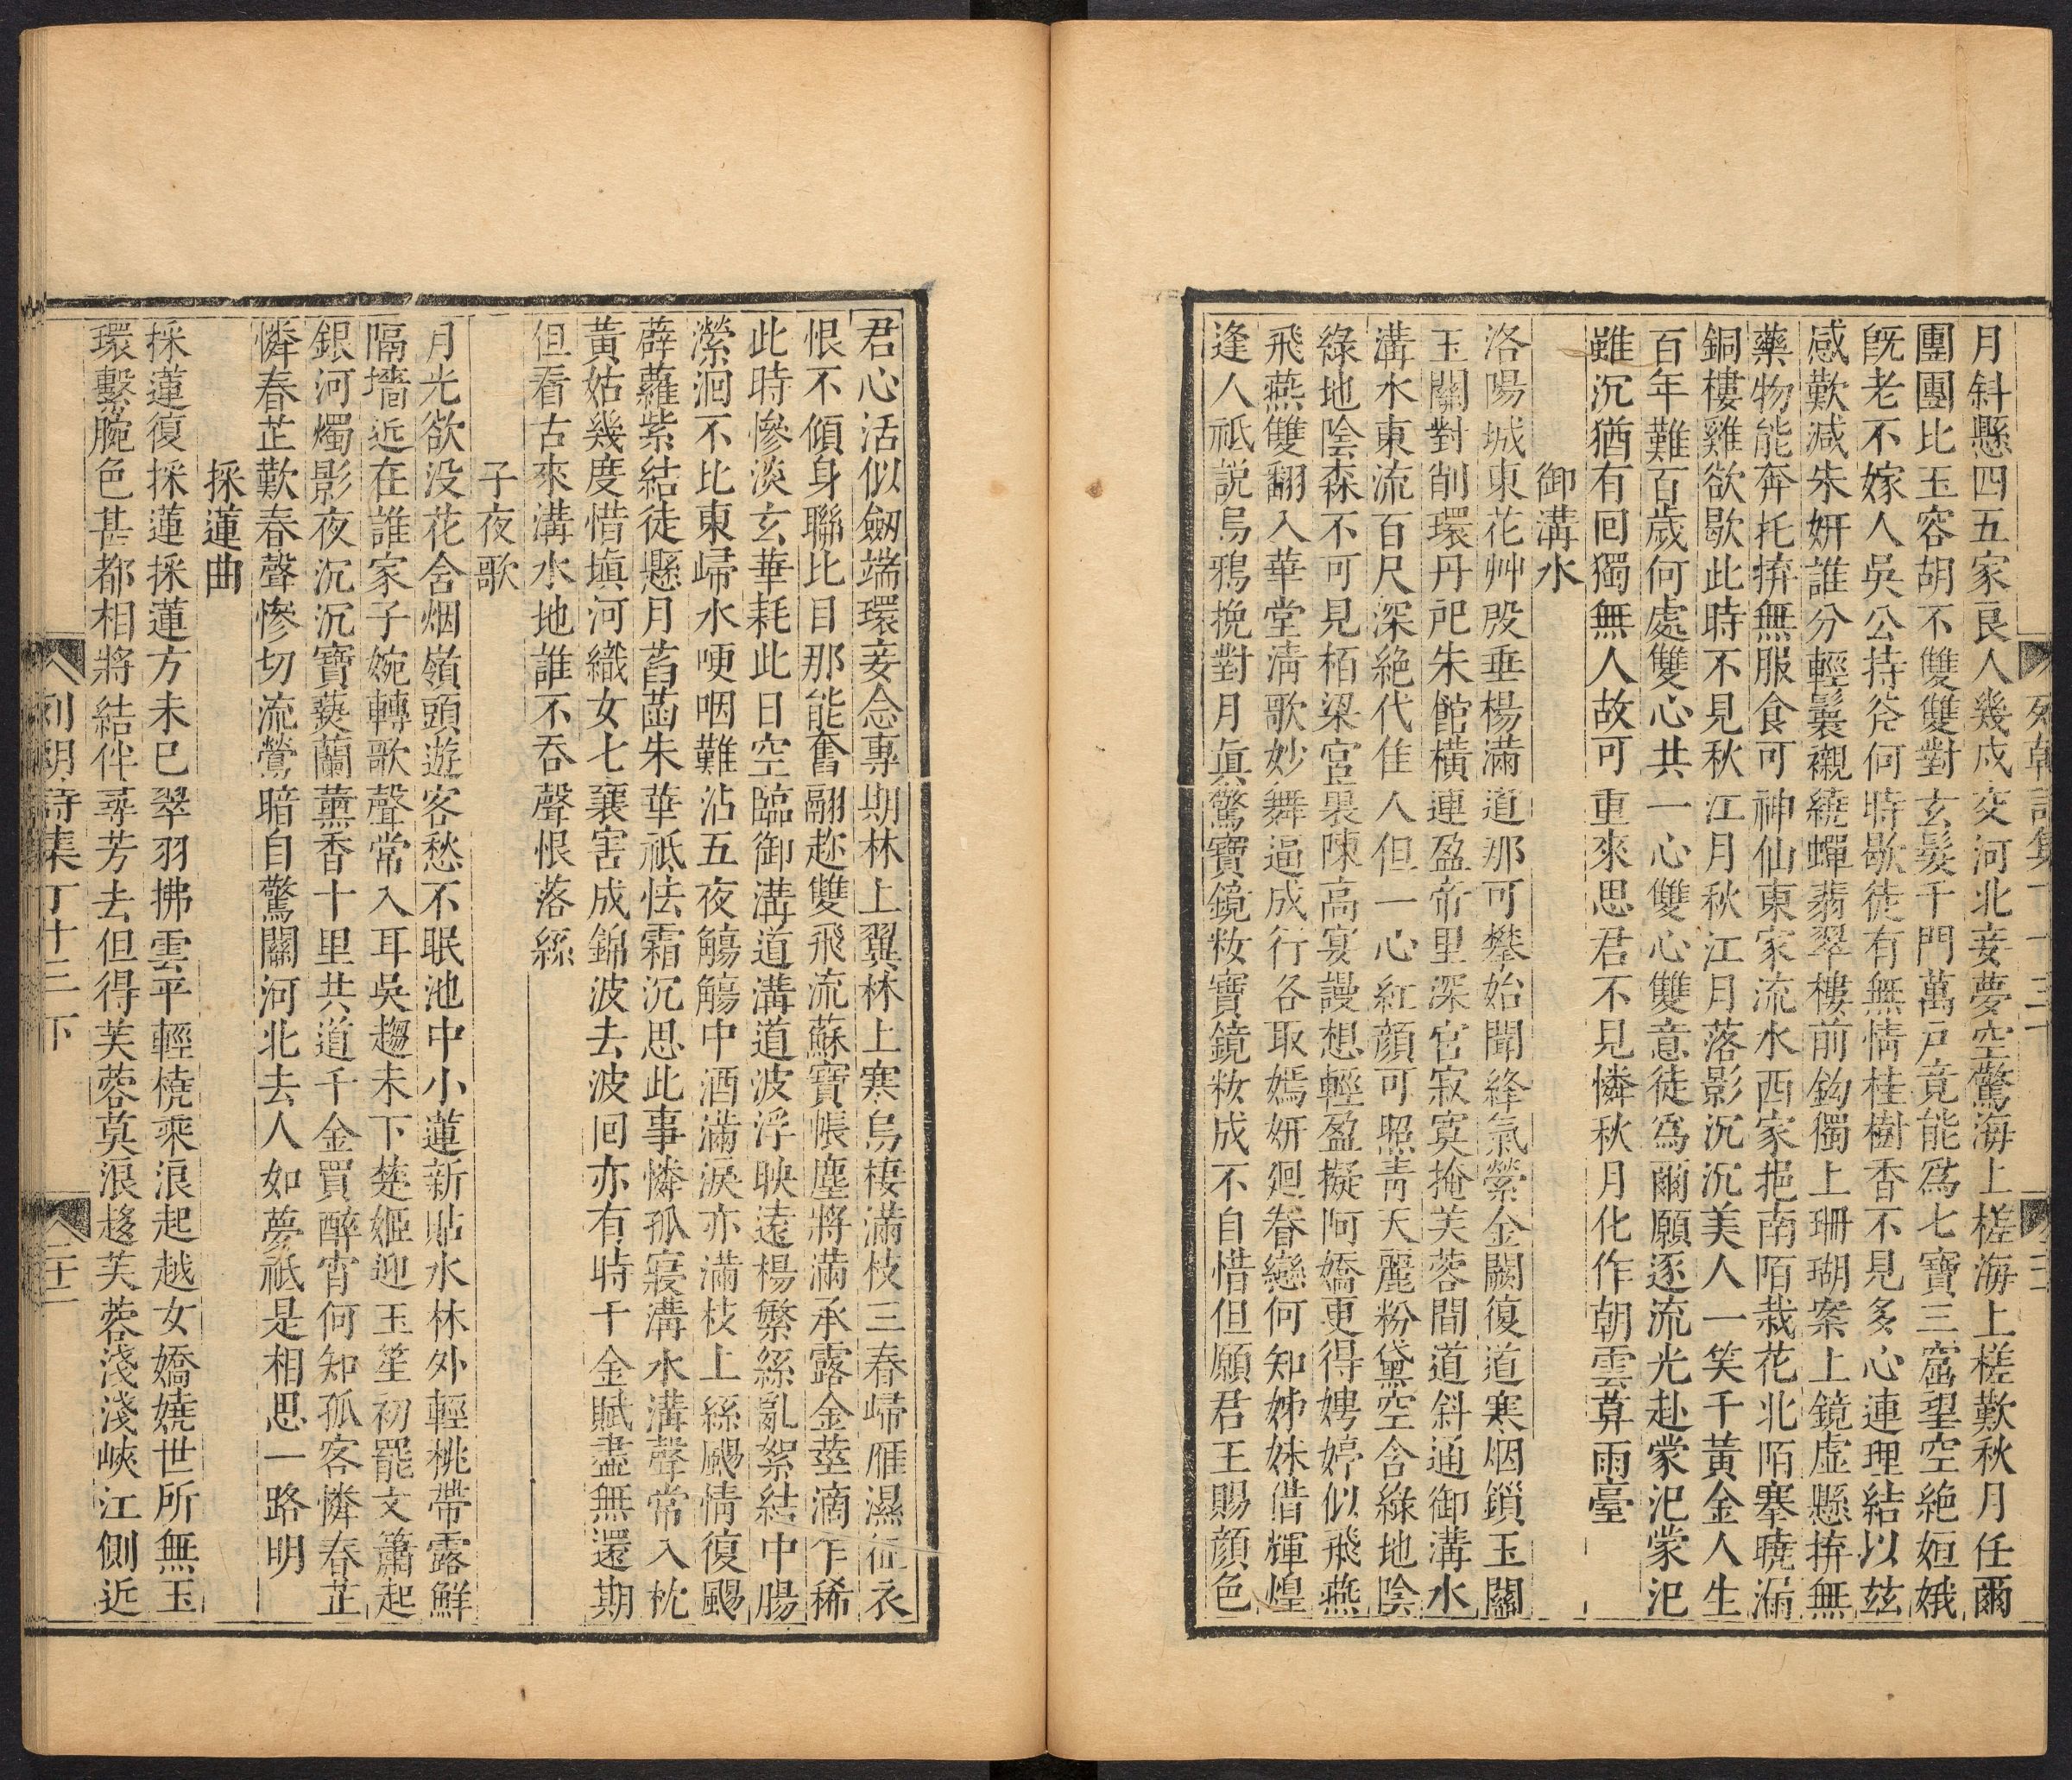 月斜懸四五家良人幾戍交河北妾夢空驚海上槎海上槎歎秋月任爾
團團比玉容胡不雙雙對玄髮千門萬戸竟能爲七寶三窟望空絶姮娥
旣老不嫁人吳公持斧何時歇徒有無情桂樹香不見多心連理結以玆
感歎減朱妍誰分輕鬟襯繞蟬翡翠樓前鈎獨上珊瑚案上鏡虚懸拚無
藥物能奔托拚無服食可神仙東家流水西家抱南陌栽花北陌搴曉漏
銅樓雞欲歇此時不見秋江月秋江月落影沉沉美人一笑千黃金人生
百年難百歲何處雙心共一心雙心雙意徒爲爾願逐流光赴蒙汜蒙汜
雖沉猶有回獨無人故可重來思君不見憐秋月化作朝雲算雨臺
御溝水
洛陽城東花艸殷垂楊滿道那可攀始聞絳氣縈金闕復道寒烟鎖玉關
玉關對削環丹戺朱館橫連盈帝里深宫寂寞掩芙蓉間道斜通御溝水
溝水東流百尺深絶代佳人但一心紅顔可照靑天麗粉黛空含綠地陰
綠地陰森不可見栢梁宫裏陳高宴謾想輕盈擬阿嬌更得娉婷似飛燕
飛燕雙翻入華堂淸歌妙舞逼成行各取嫣妍廻眷戀何知姊妹借輝煌
逢人祗説烏鴉挽對月眞驚寶鏡籹寶鏡籹成不自惜但願君王賜顔色
君心活似劒端環妾念專期林上翼林上寒烏棲滿枝三春歸雁濕征衣
恨不傾身聯比目那能奮翮趂雙飛流蘇寶帳塵將滿承露金莖滴乍稀
此時慘淡玄華耗此日空臨御溝道溝道波浮映遠楊繁絲亂絮結中腸
瀠洄不比東歸水哽咽難沾五夜觴觴中酒滿淚亦滿枝上絲颺情復颺
薜蘿紫結徒懸月菡萏朱華祗怯霜沉思此事憐孤寢溝水溝聲常入枕
黃姑幾度惜塡河織女七襄害成錦波去波回亦有時千金賦盡無還期
但看古來溝水地誰不吞聲恨落絲
子夜歌
月光欲没花含烟嶺頭遊客愁不眠池中小蓮新貼水林外輕桃帶露鮮
隔墻近在誰家子婉轉歌聲常入耳吳趨未下楚姬迎玉笙初罷文簫起
銀河燭影夜沉沉寶爇蘭薰香十里共道千金買醉宵何知孤客憐春芷
憐春芷歎春聲慘切流鶯暗自驚關河北去人如夢祗是相思一路明
採蓮曲
採蓮復採蓮採蓮方未已翠羽拂雲平輕橈乘浪起越女嬌嬈世所無玉
環繫腕色甚都相將結伴尋芳去但得芙蓉莫浪趍芙蓉淺淺峽江側近
列朝詩集丁十三下